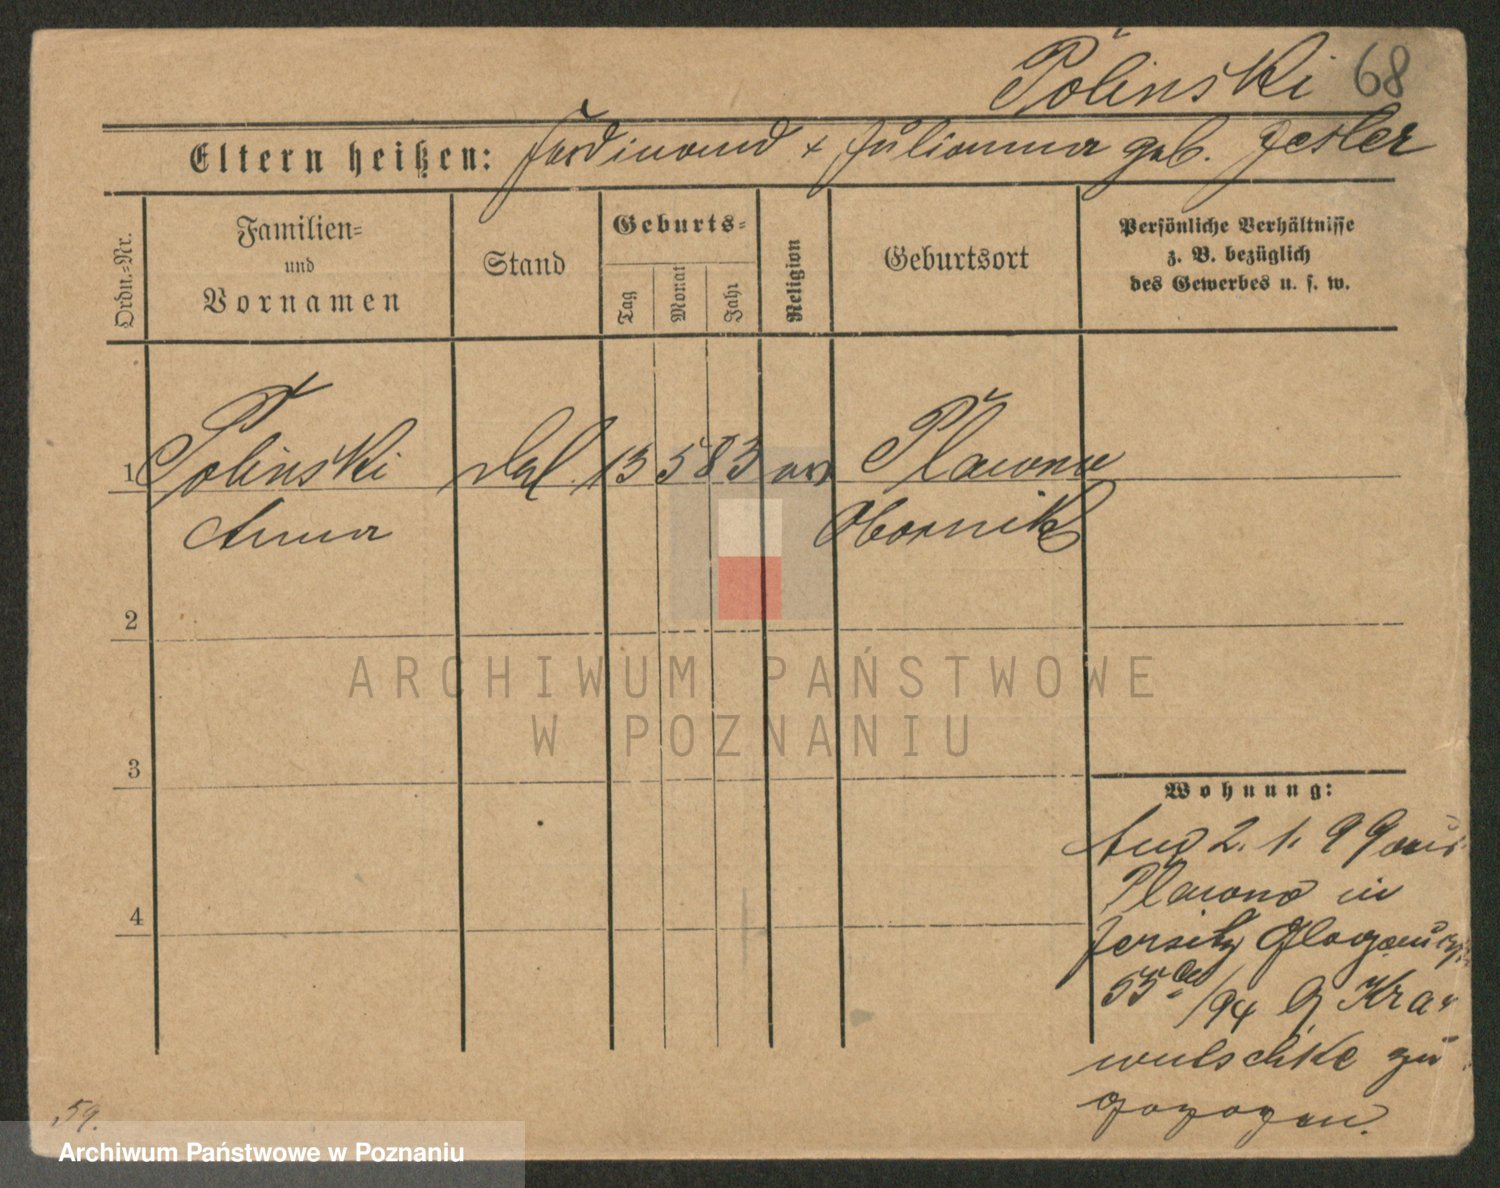 Polinski 68
Eltern heißen: Ferdinand + Julianna geb. Jesker
Ordn.-Nr.
Familien-
und
Vornamen
Stand
Geburts-
Tag
Monat
Jahr
Religion
Geburtsort
Persönliche Verhältnisse
z. B. bezüglich
des Gewerbes u. s. w.
1 Polinski 13 5 83 ev Plawno
Anna Obornik
2
3
4
Wohnung:
2. 1. 99 aus
Plawno in
Jersitz
/94 b Kra-
wulschke zu
gezogen.
59.
ARCHIWUM PAŃSTWOWE
W POZNANIU
Archiwum Państwowe w Poznaniu